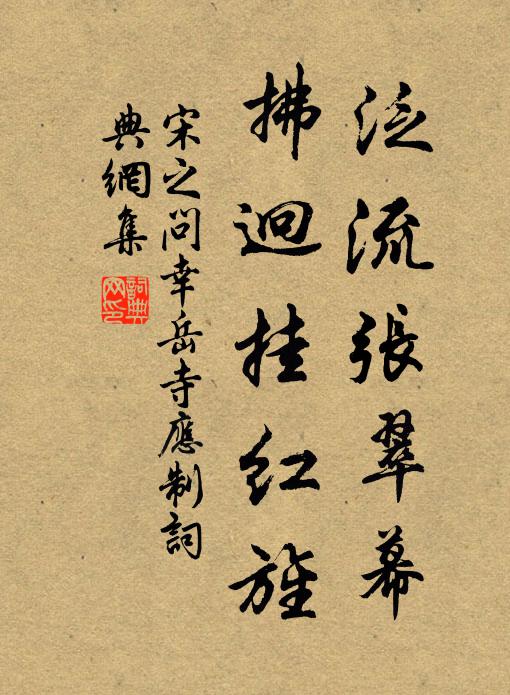 泛流張翠幕
拂迥挂紅旌
宋之問幸岳寺應制詞
典網集
詞典网印